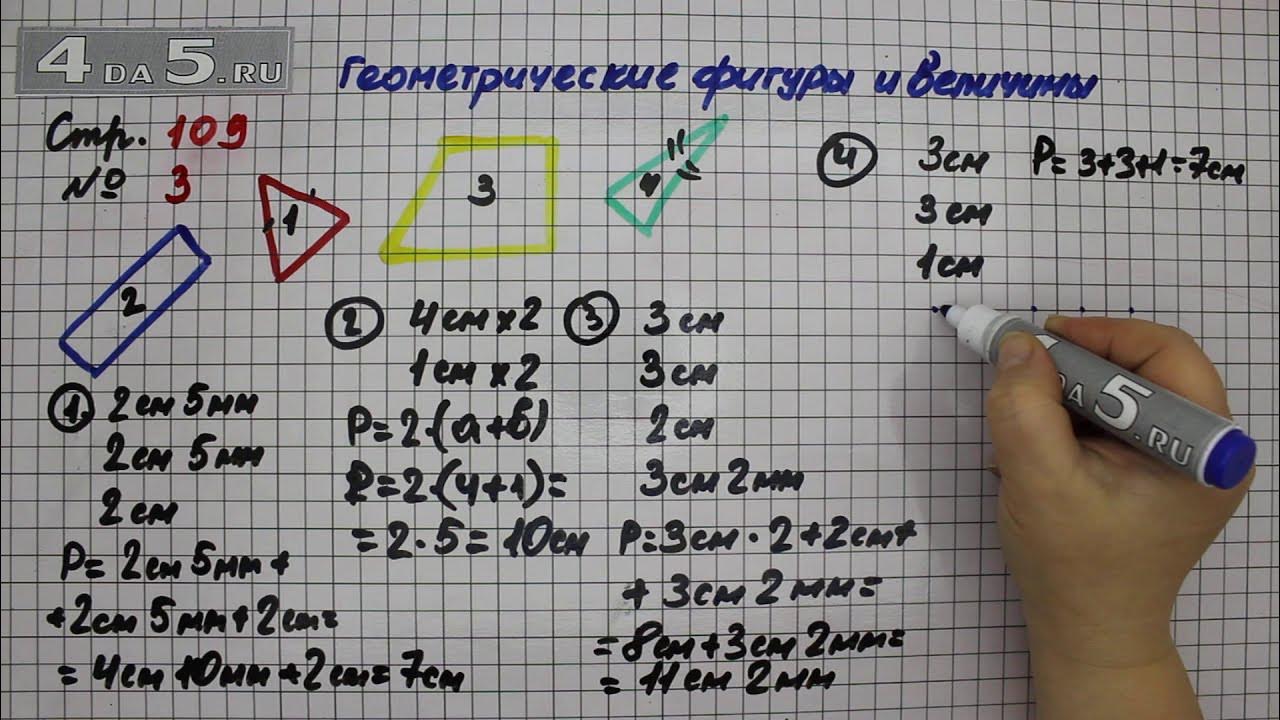 4DA5.RU
Геометрические фигуры и величины
Стр. 109
№ 3
1
2
3
4
① 2см 5мм
2см 5мм
2см
P= 2см 5мм+
+2см 5мм+2см=
= 4см 10мм+2см=7см
② 4см×2
1см×2
P=2·(а+б)
P=2·(4+1)=
=2·5=10см
③ 3см
3см
2см
3см 2мм
P=3см·2+2см+
+3см 2мм=
=8см+3см 2мм=
=11см 2мм
④ 3см
3см
1см
P=3+3+1=7см
4DA5.RU